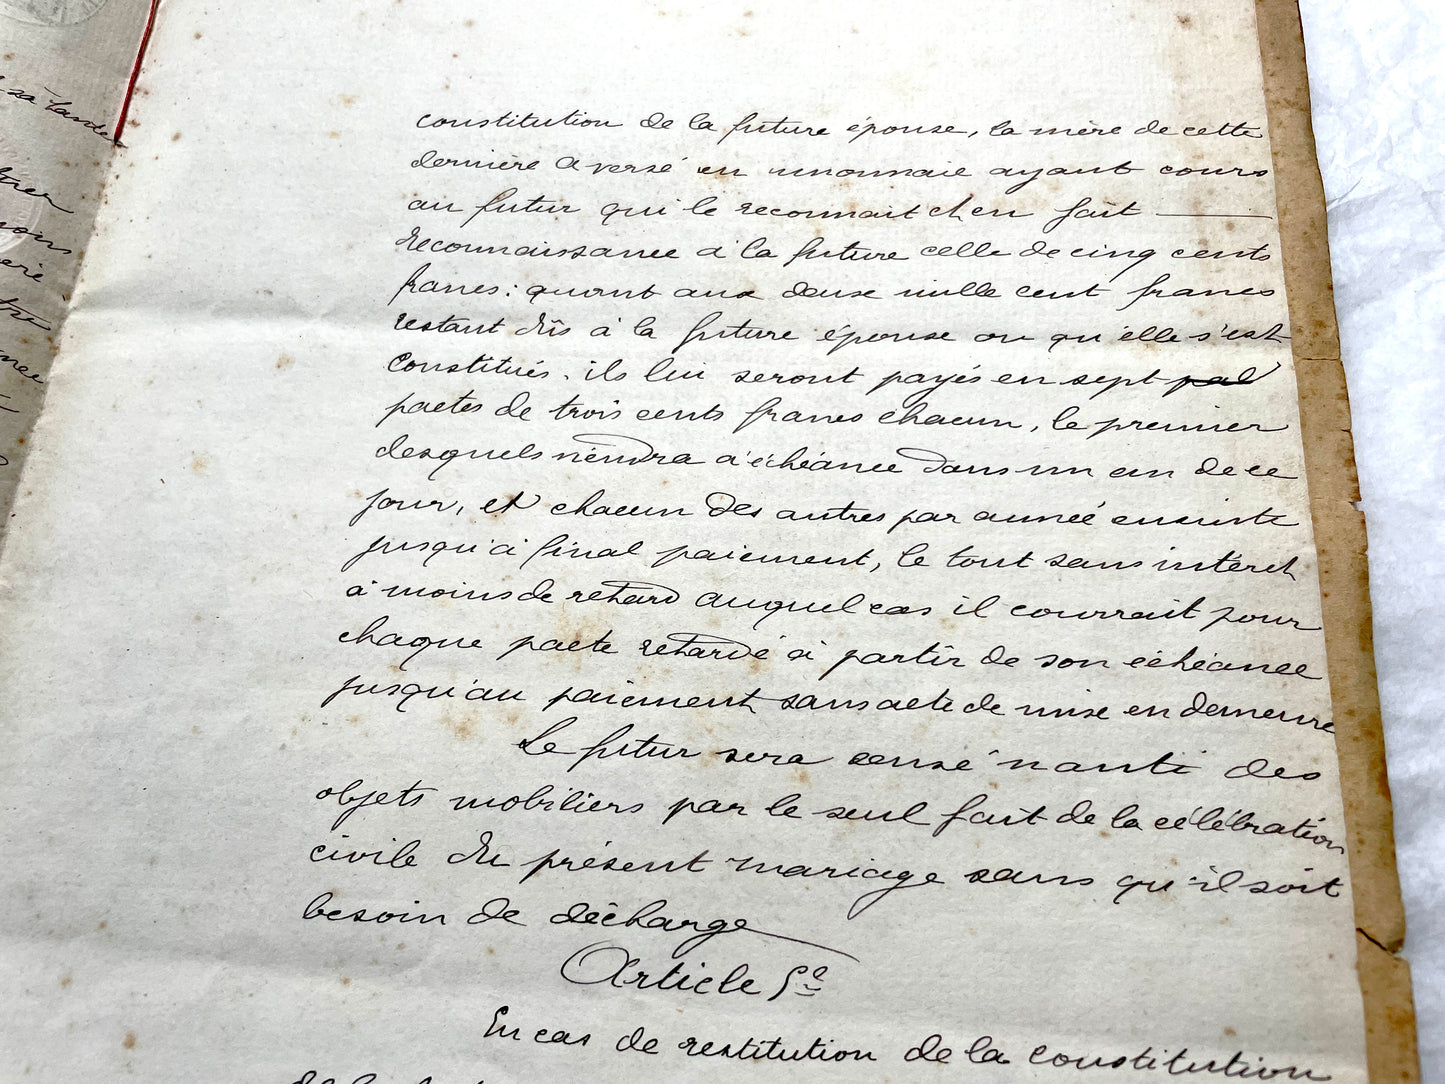 sa tante
constitution de la future épouse, la mère de cette
dernière a versé en monnaie ayant cours
au futur qui le reconnait et en fait
reconnaissance à la future celle de cinq cents
francs: quant aux deux mille cent francs
restant dûs à la future épouse ou qu'elle s'est
constitués. ils lui seront payés en sept pal
pactes de trois cents francs chacun, le premier
desquels viendra à échéance dans un an de ce
jour, et chacun des autres par année ensuite
jusqu'à final paiement, le tout sans intéret
à moins de retard auquel cas il courrait pour
chaque pacte retardé à partir de son échéance
jusqu'au paiement sans acte de mise en demeure
Le futur sera censé nanti des
objets mobiliers par le seul fait de la célébration
civile du présent mariage sans qu'il soit
besoin de décharge
Article 5e
En cas de restitution de la constitution